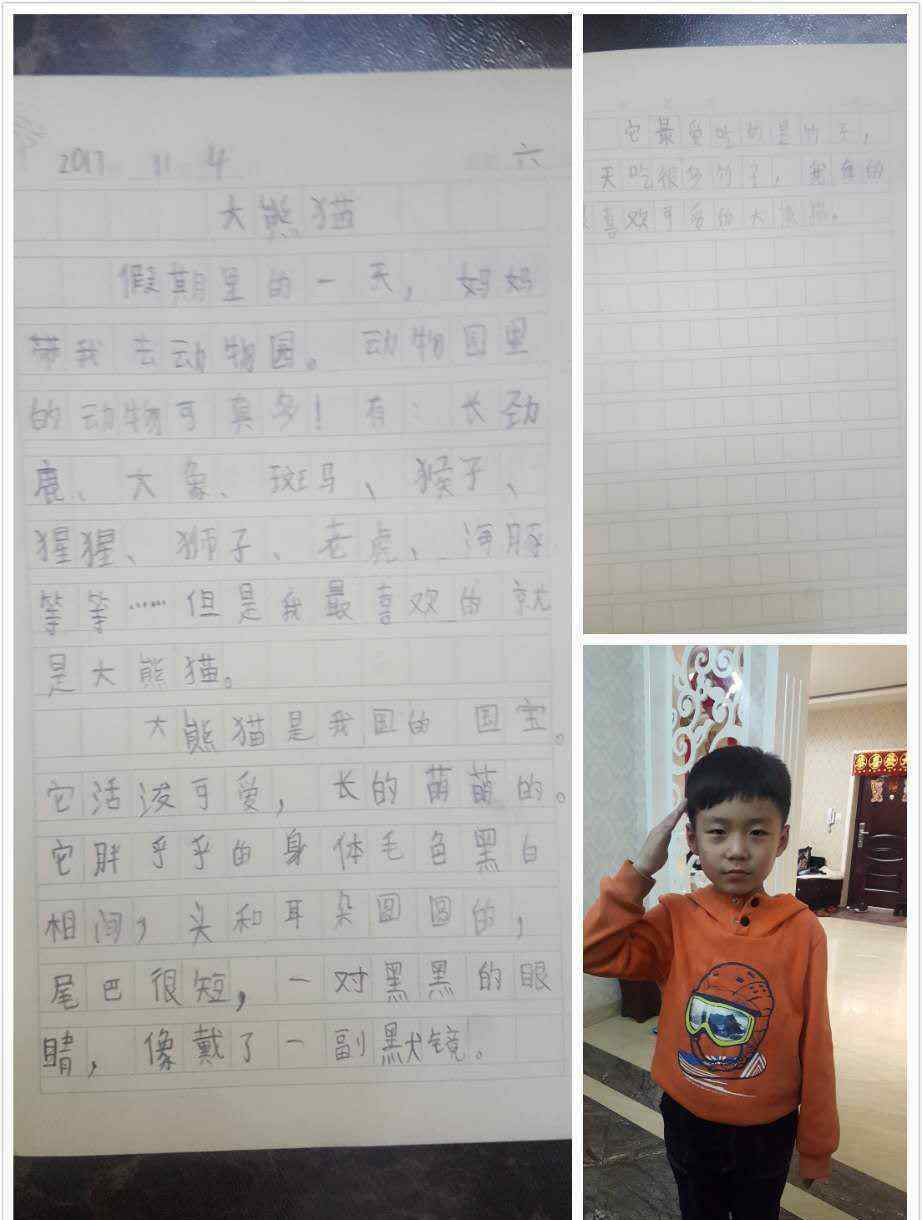 2017 11 4 六
大熊猫
假期里的一天，妈妈
带我去动物园。动物园里
的动物可真多！有：长劲
鹿、大象、斑马、猴子、
猩猩、狮子、老虎、海豚
等等……但是我最喜欢的就
是大熊猫。
大熊猫是我国的国宝。
它活泼可爱，长的萌萌的。
它胖乎乎的身体毛色黑白
相间，头和耳朵圆圆的，
尾巴很短，一对黑黑的眼
睛，像戴了一副默镜。
它最爱吃的是竹子，
天吃很多竹子，我真的
喜欢可爱的大熊猫。